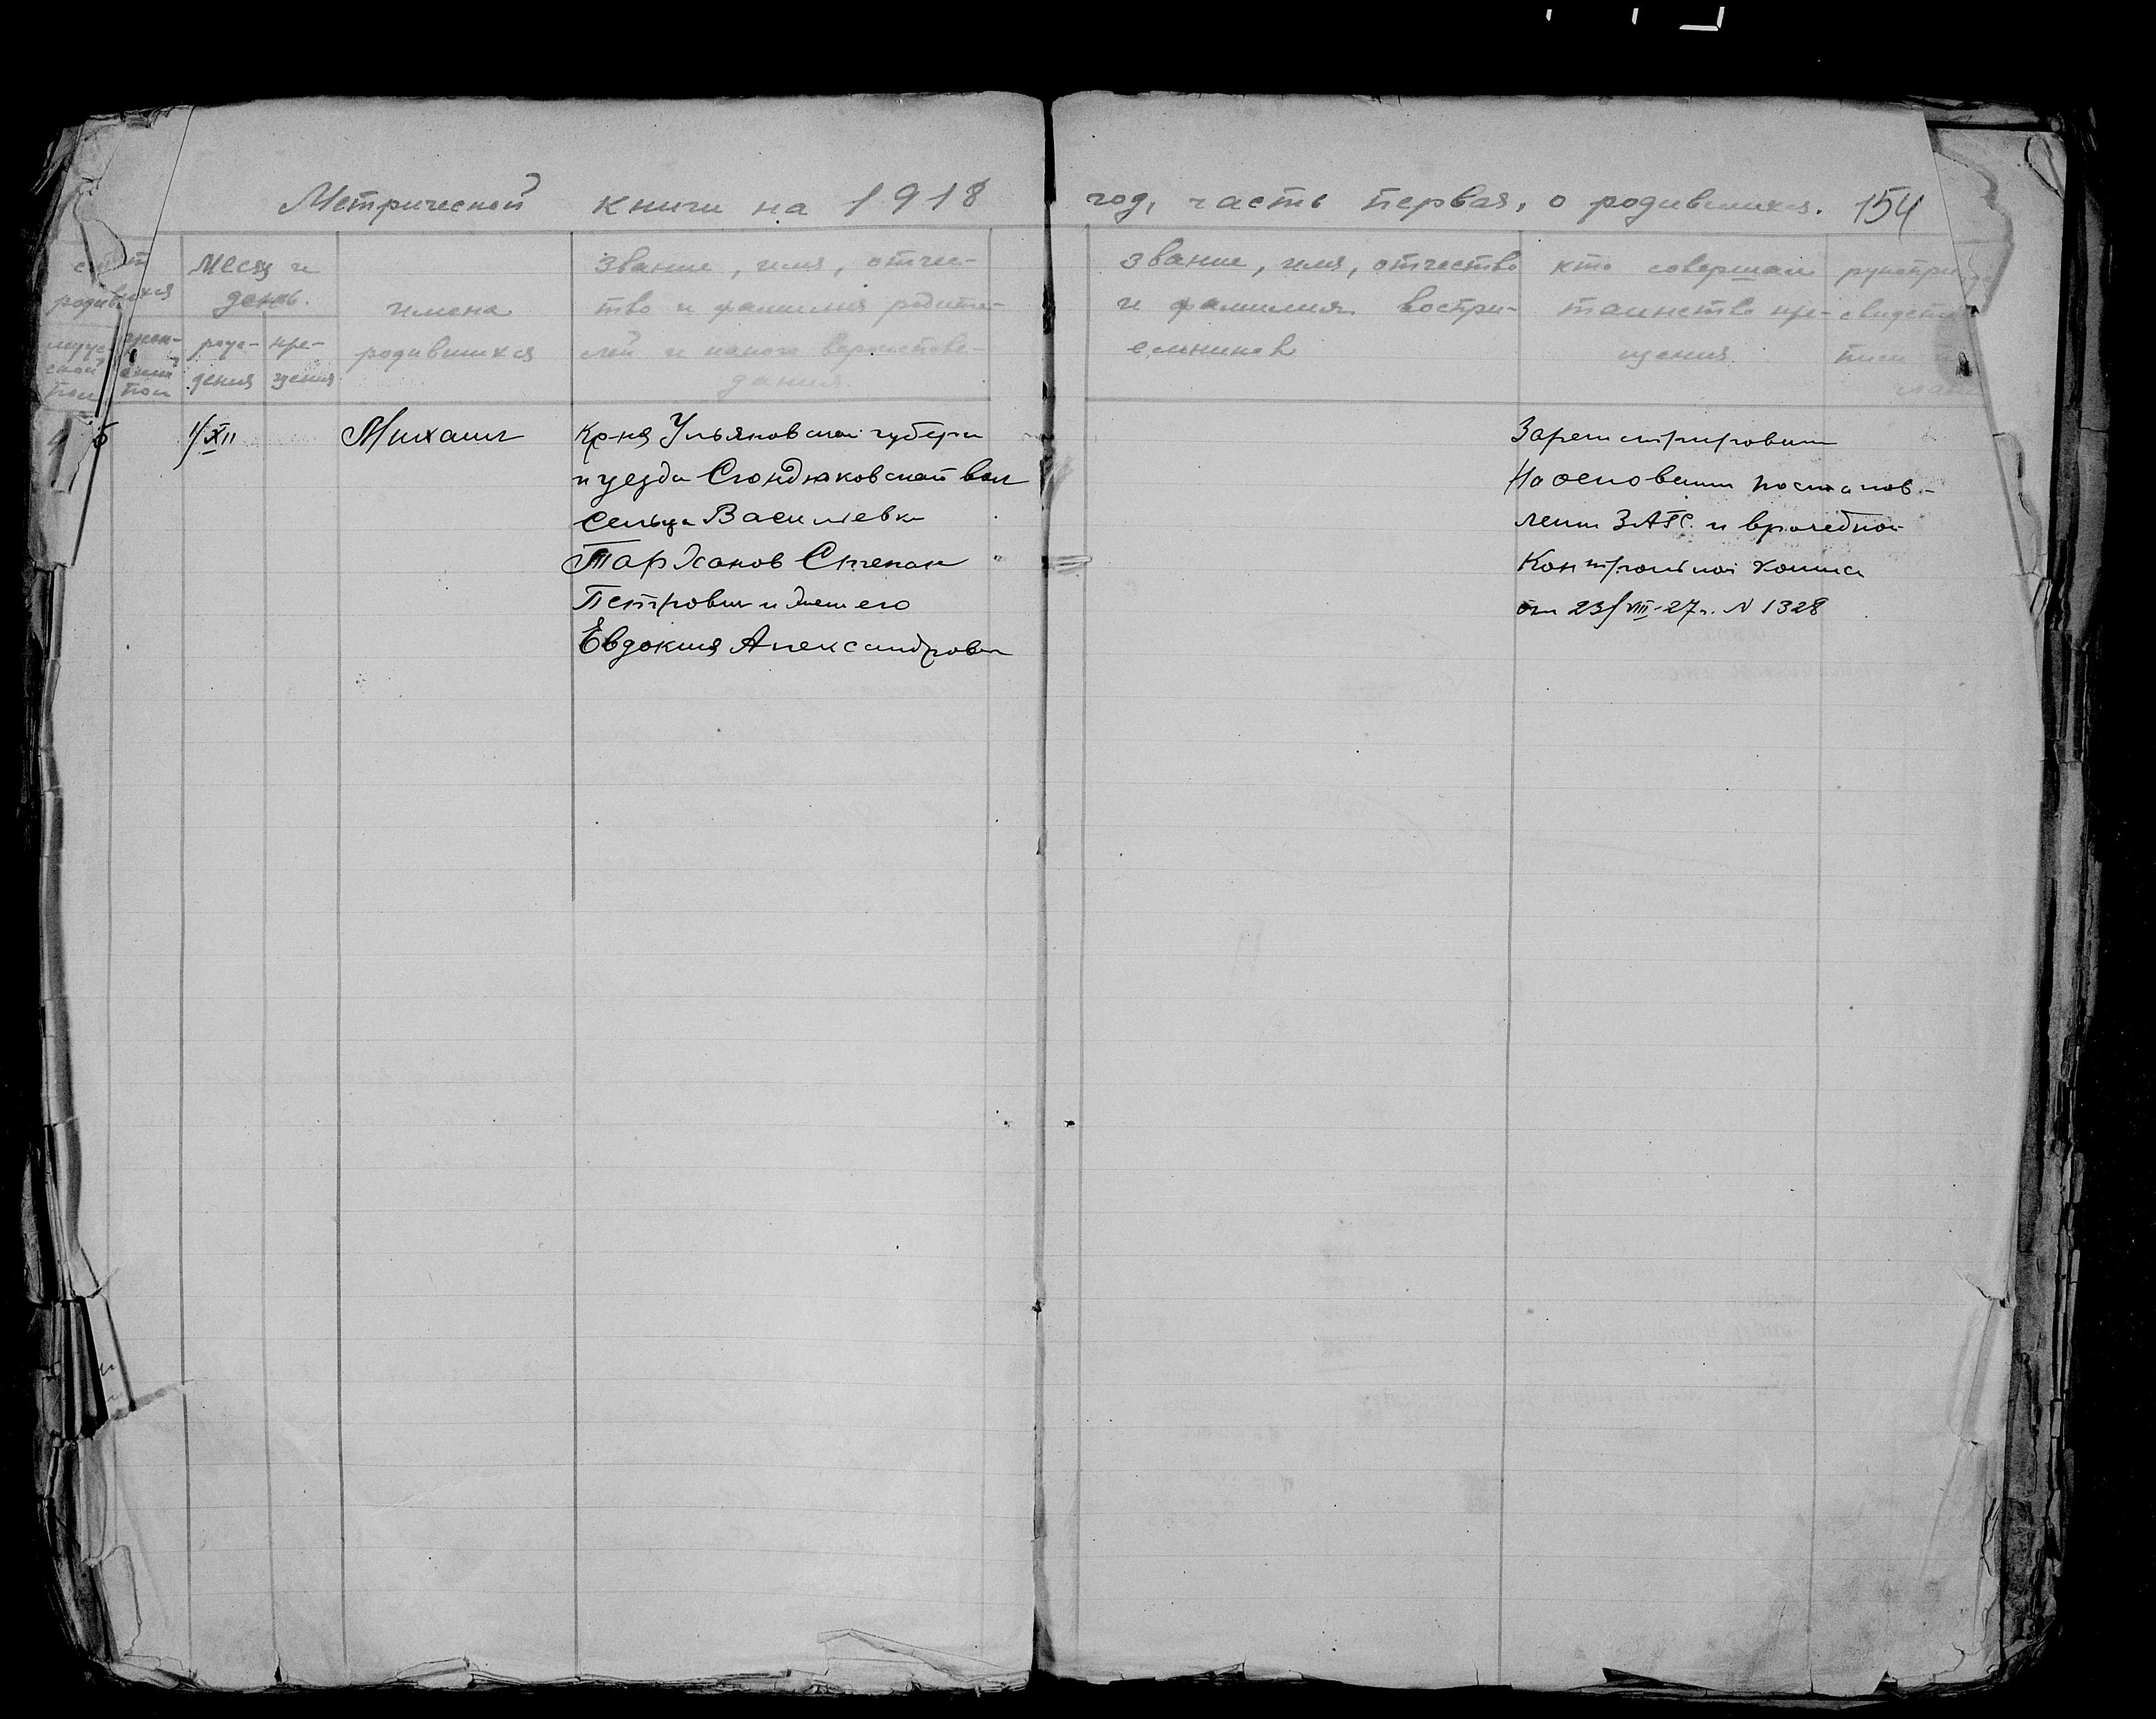 Метрической книги на 1918 год, часть первая, о родившихся. 154
Месяц и
день.
рож-
дения
кре-
щения
имена
родившихся
звание, имя, отчес-
тво и фамилия родите-
лей и какого вероиспове-
дания
звание, имя, отчество
и фамилия воспри-
емников
кто совершал
таинство кре-
щения
рукопри
свидет
1/XII
Михаил
Кр-не Ульяновской губерн
и уезда Сюндюковской вол
Сельца Василевки
Тарханов Степан
Петрович и жена его
Евдокия Александровн
Зарегистрирован
На основании постанов-
лени ЗАГС и врачебной
Контрольной комис
от 23/VIII-27г. N 1328